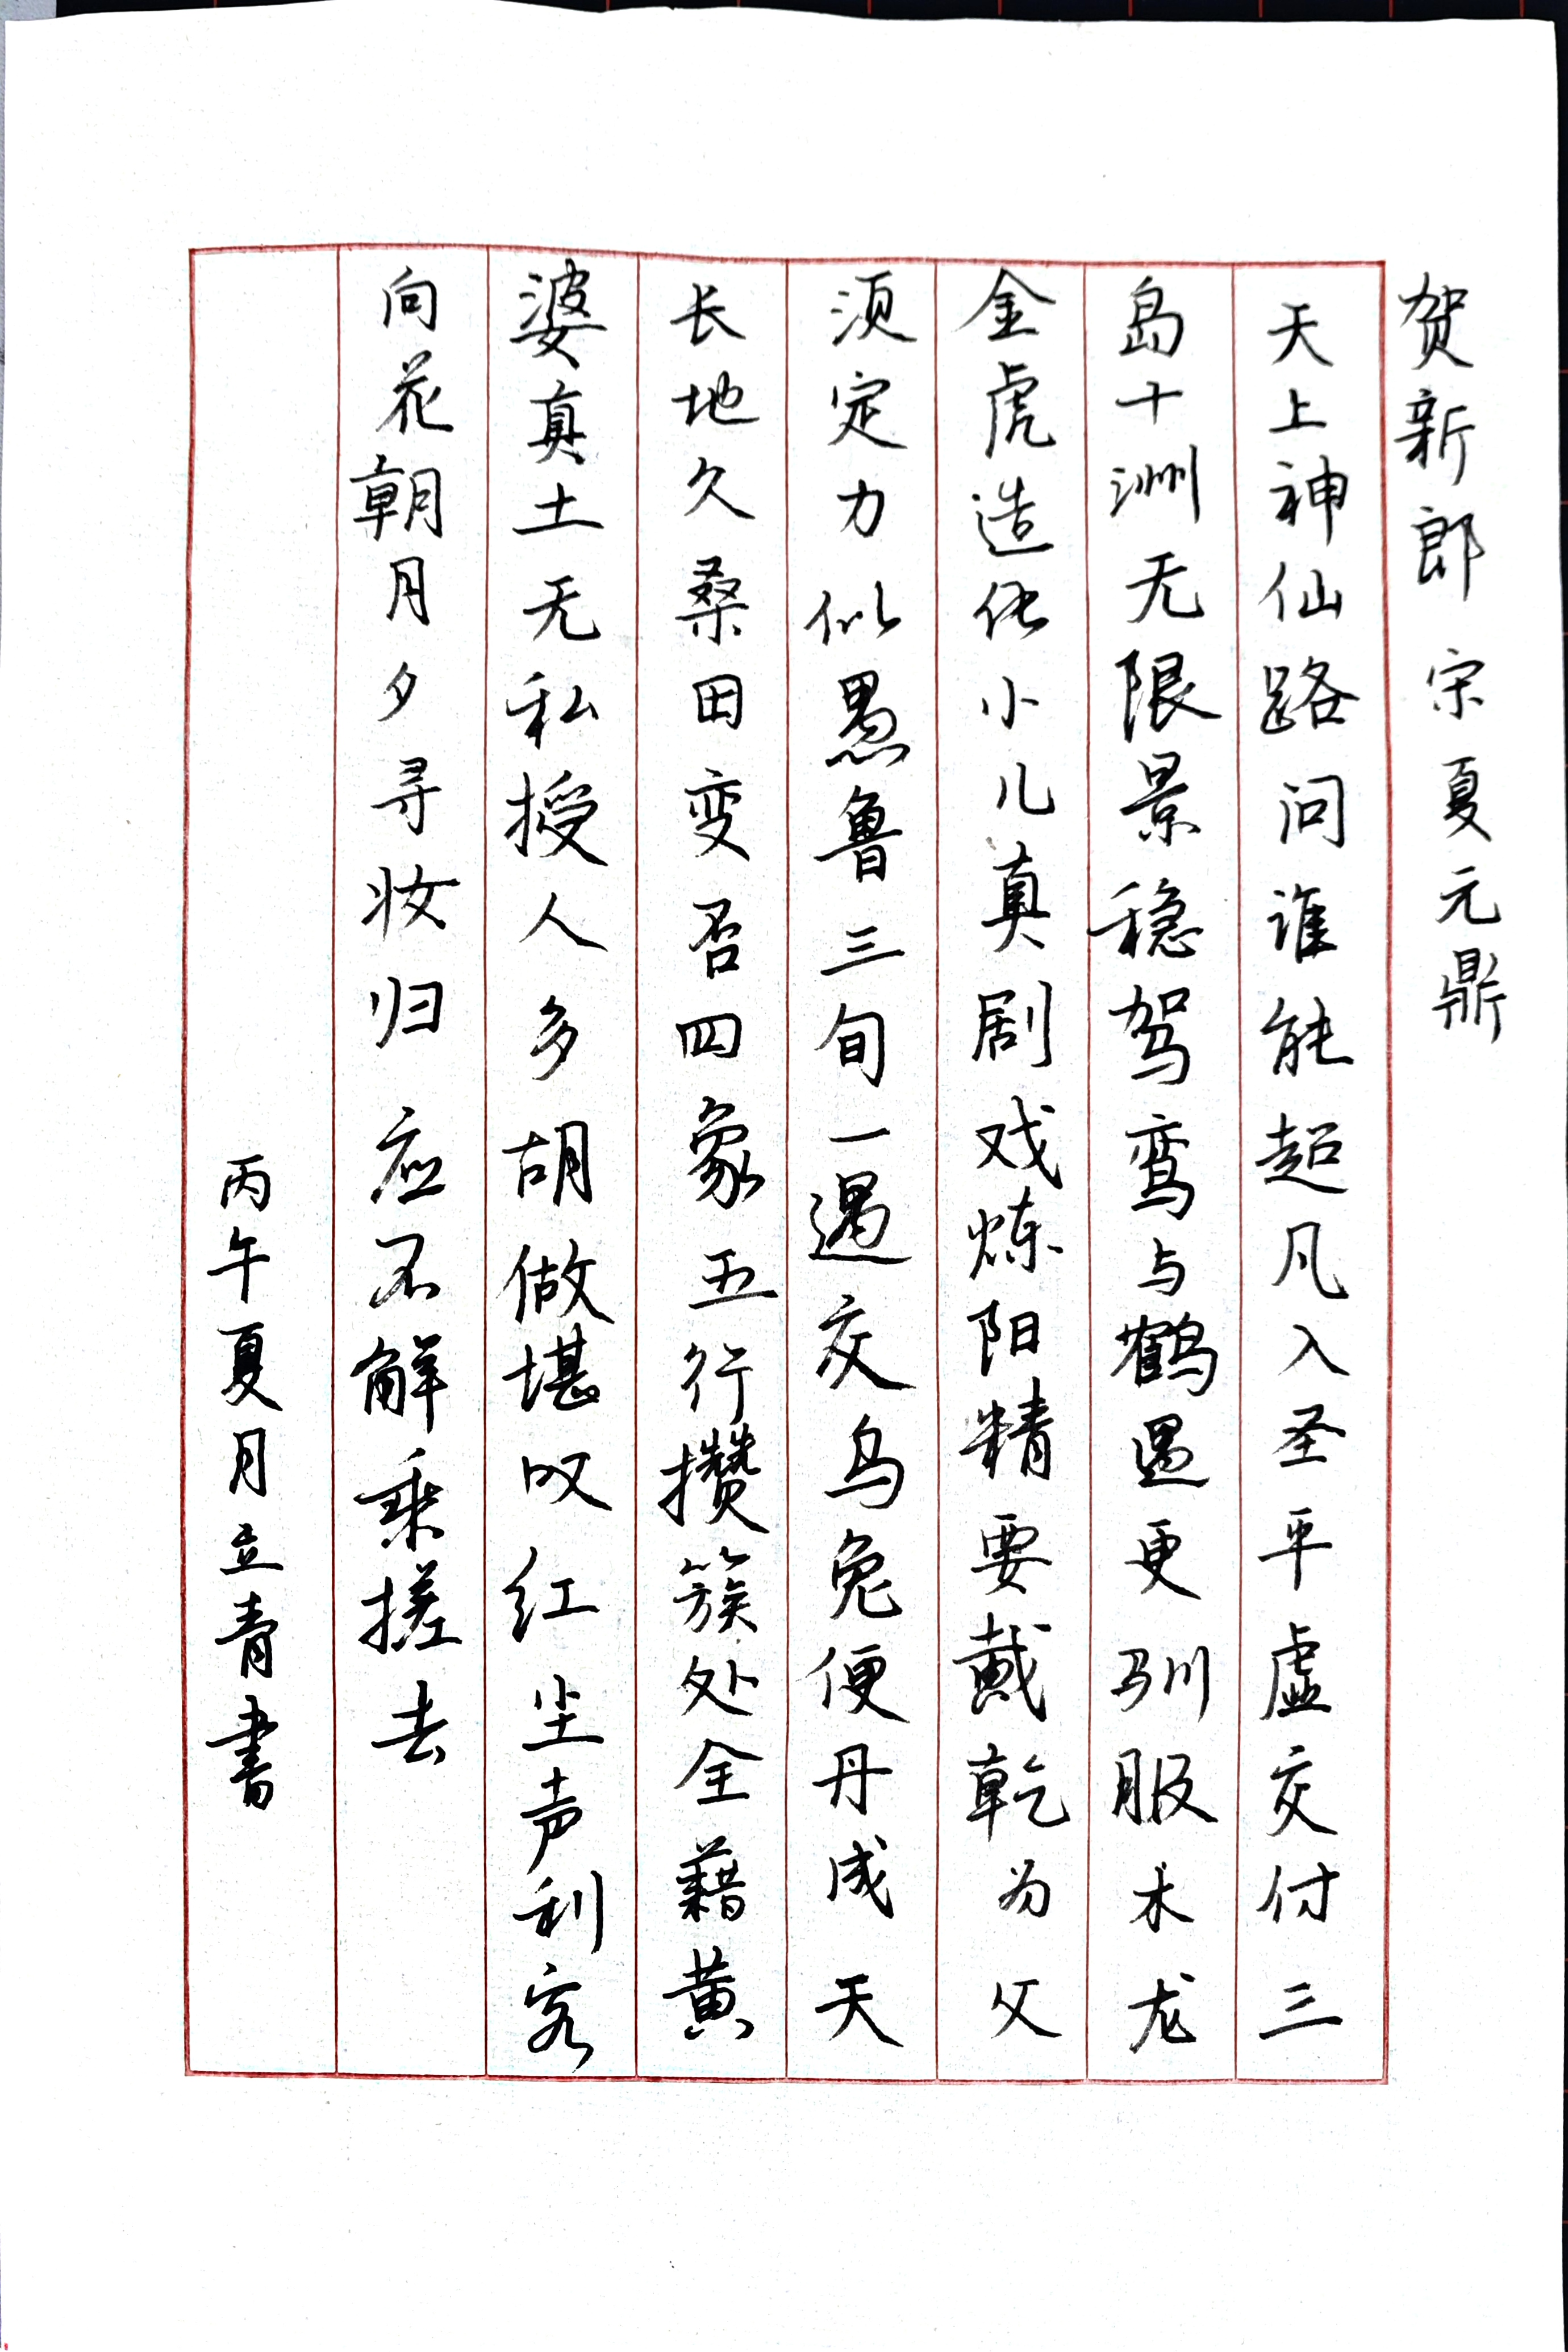 贺新郎 宋 夏元鼎
天上神仙路问谁能超凡入圣平虚交付三
岛十洲无限景稳驾鸾与鹤遇更驯服木龙
金虎造化小儿真剧戏炼阳精要戴乾为父
须定力似愚鲁三旬一遇交乌兔便丹成天
长地久桑田变否四象五行攒簇处全藉黄
婆真土无私授人多胡做堪叹红尘声利客
向花朝月夕寻妆归应不解乘搓去
丙午夏月立青書